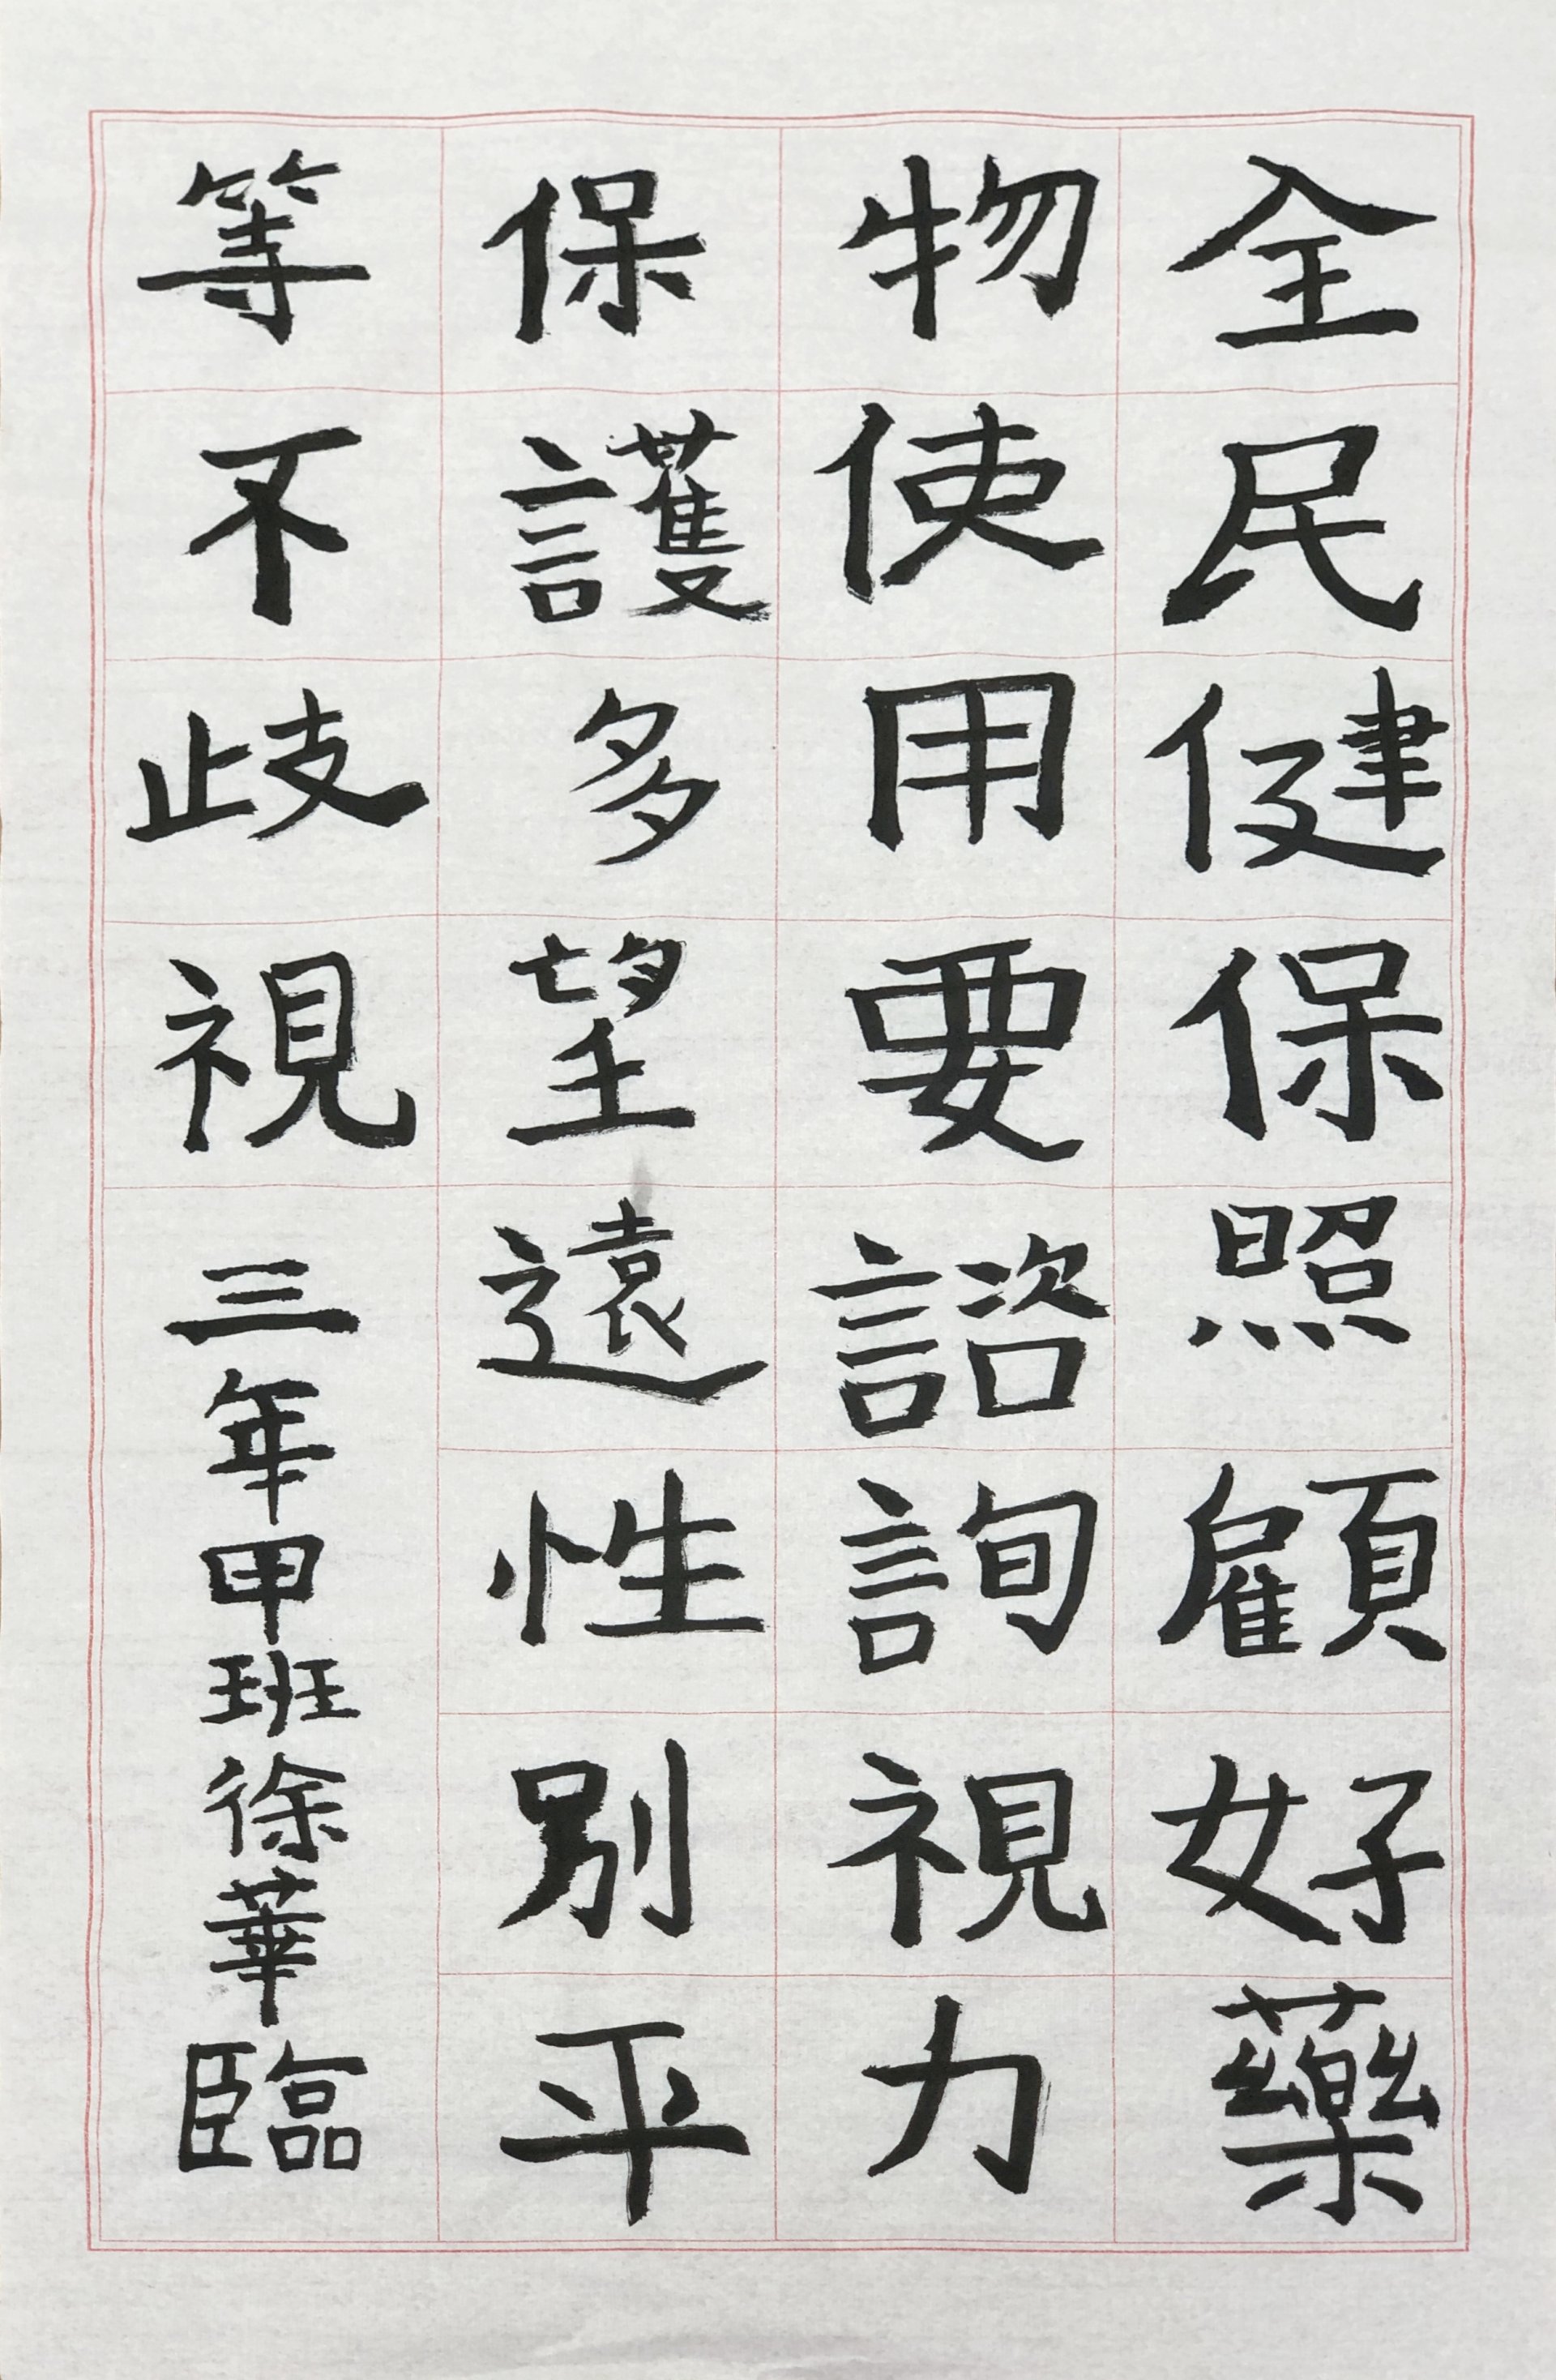 全民健保照顧好藥
物使用要諮詢視力
保護多望遠性別平
等不歧視三年甲班徐華臨